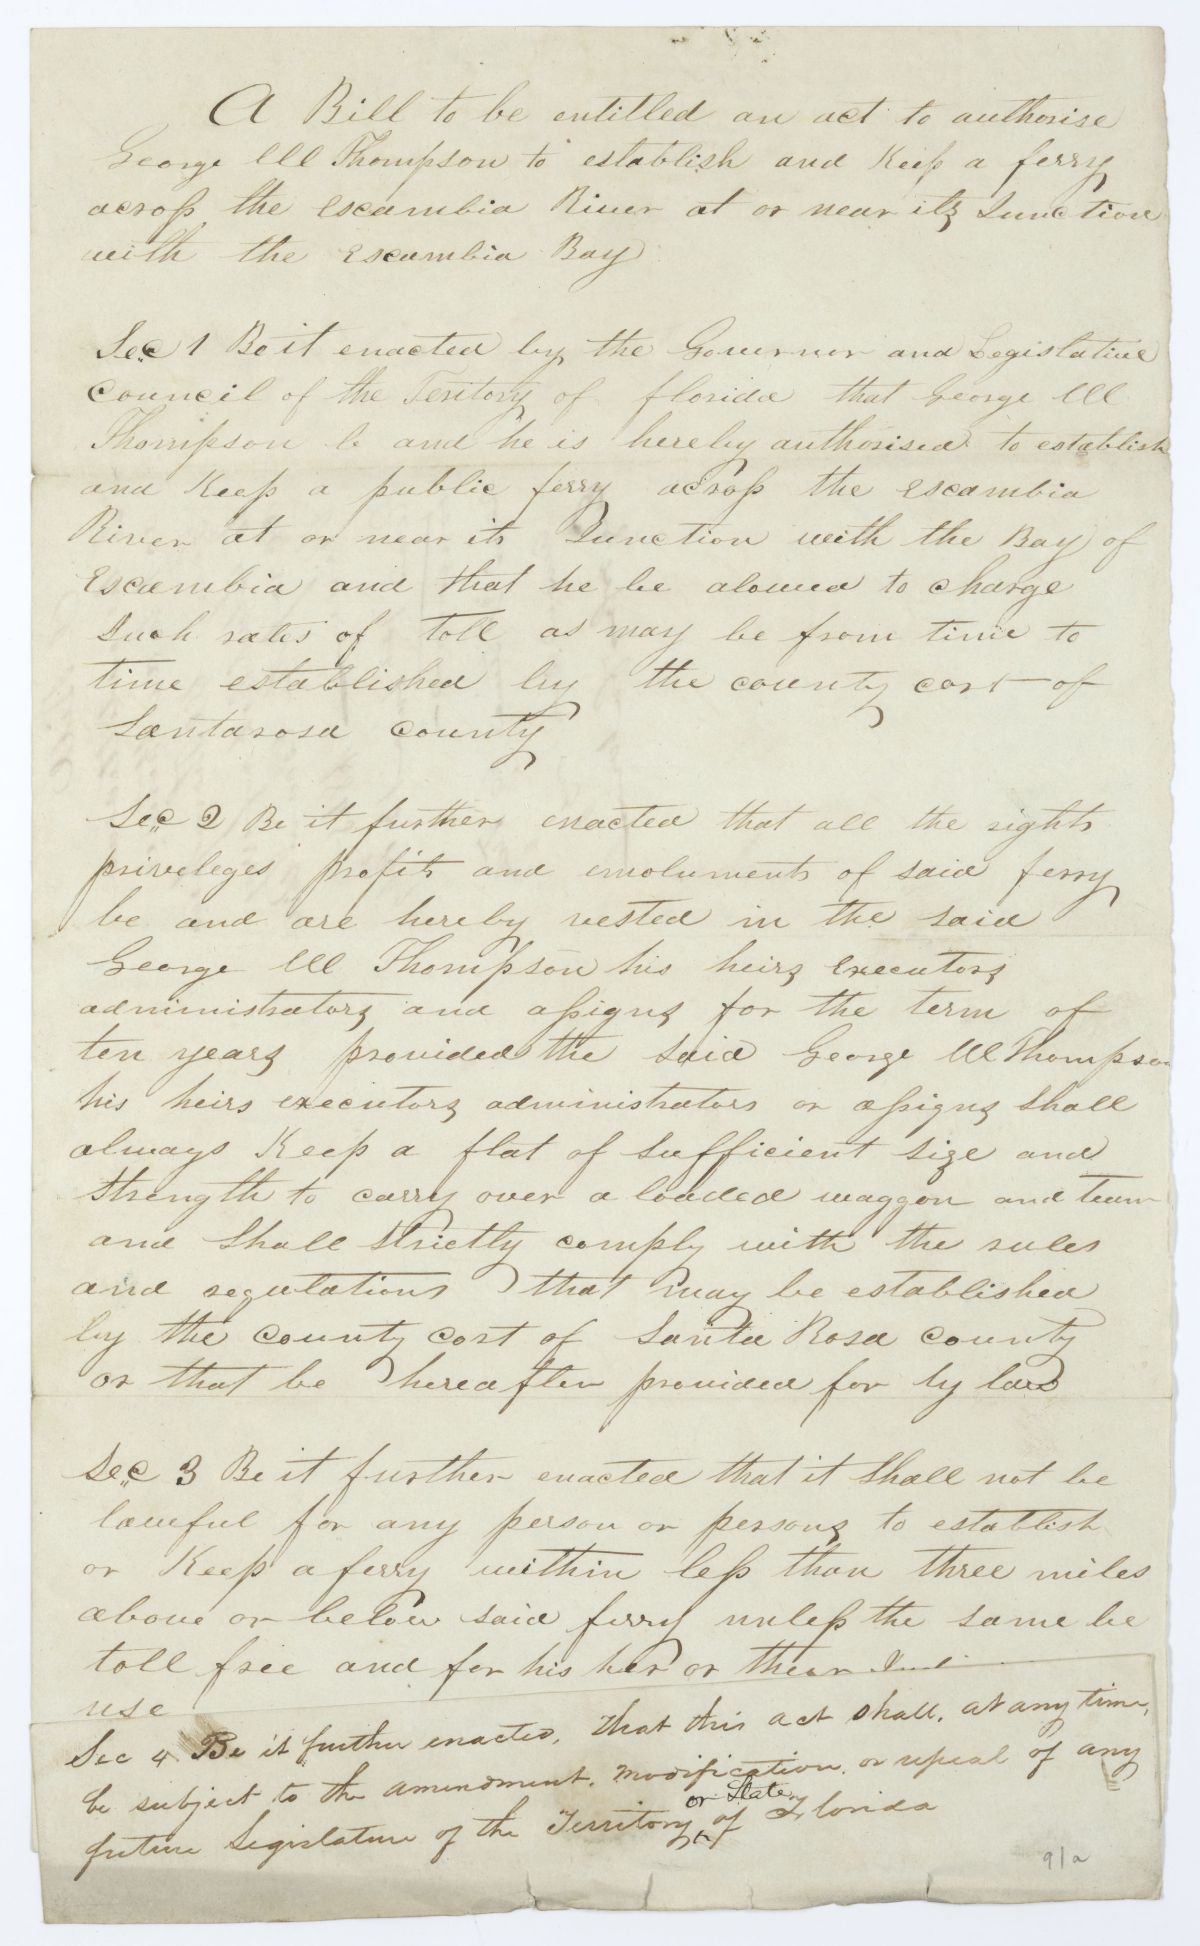 A Bill to be entitled an act to authorise
George W Thompson to establish and Keep a ferry
across the Escambia River at or near its Junction
with the Escambia Bay
Sec 1 Be it enacted by the Governor and Legislative
Council of the Teritory of florida that George W
Thompson be and he is hereby authorised to establish
and Keep a public ferry across the Escambia
River at or near its Junction with the Bay of
Escambia and that he be alowed to charge
Such rates of toll as may be from time to
time established by the county cort of
Santarosa County
Sec 2 Be it further enacted that all the rights
priveleges profits and emoluments of said ferry
be and are hereby vested in the said
George W Thompson his heirs executors
administrators and assigns for the term of
ten years provided the said George W Thompson
his heirs executors administrators or assigns shall
always Keep a flat of sufficient size and
Strength to carry over a loaded waggon and team
and Shall Strictly comply with the rules
and regulations that may be established
by the county cort of Santa Rosa county
or that be hereafter provided for by law
Sec 3 Be it further enacted that it Shall not be
lawful for any person or persons to establish
or Keep a ferry within less than three miles
above or below said ferry unless the same be
toll free and for his her or thear
use
Sec 4 Be it further enacted, That this act shall, at any time,
be subject to the amendment, modification, or repeal of any
or State
future Legislature of the Territory ^ of Florida
91a